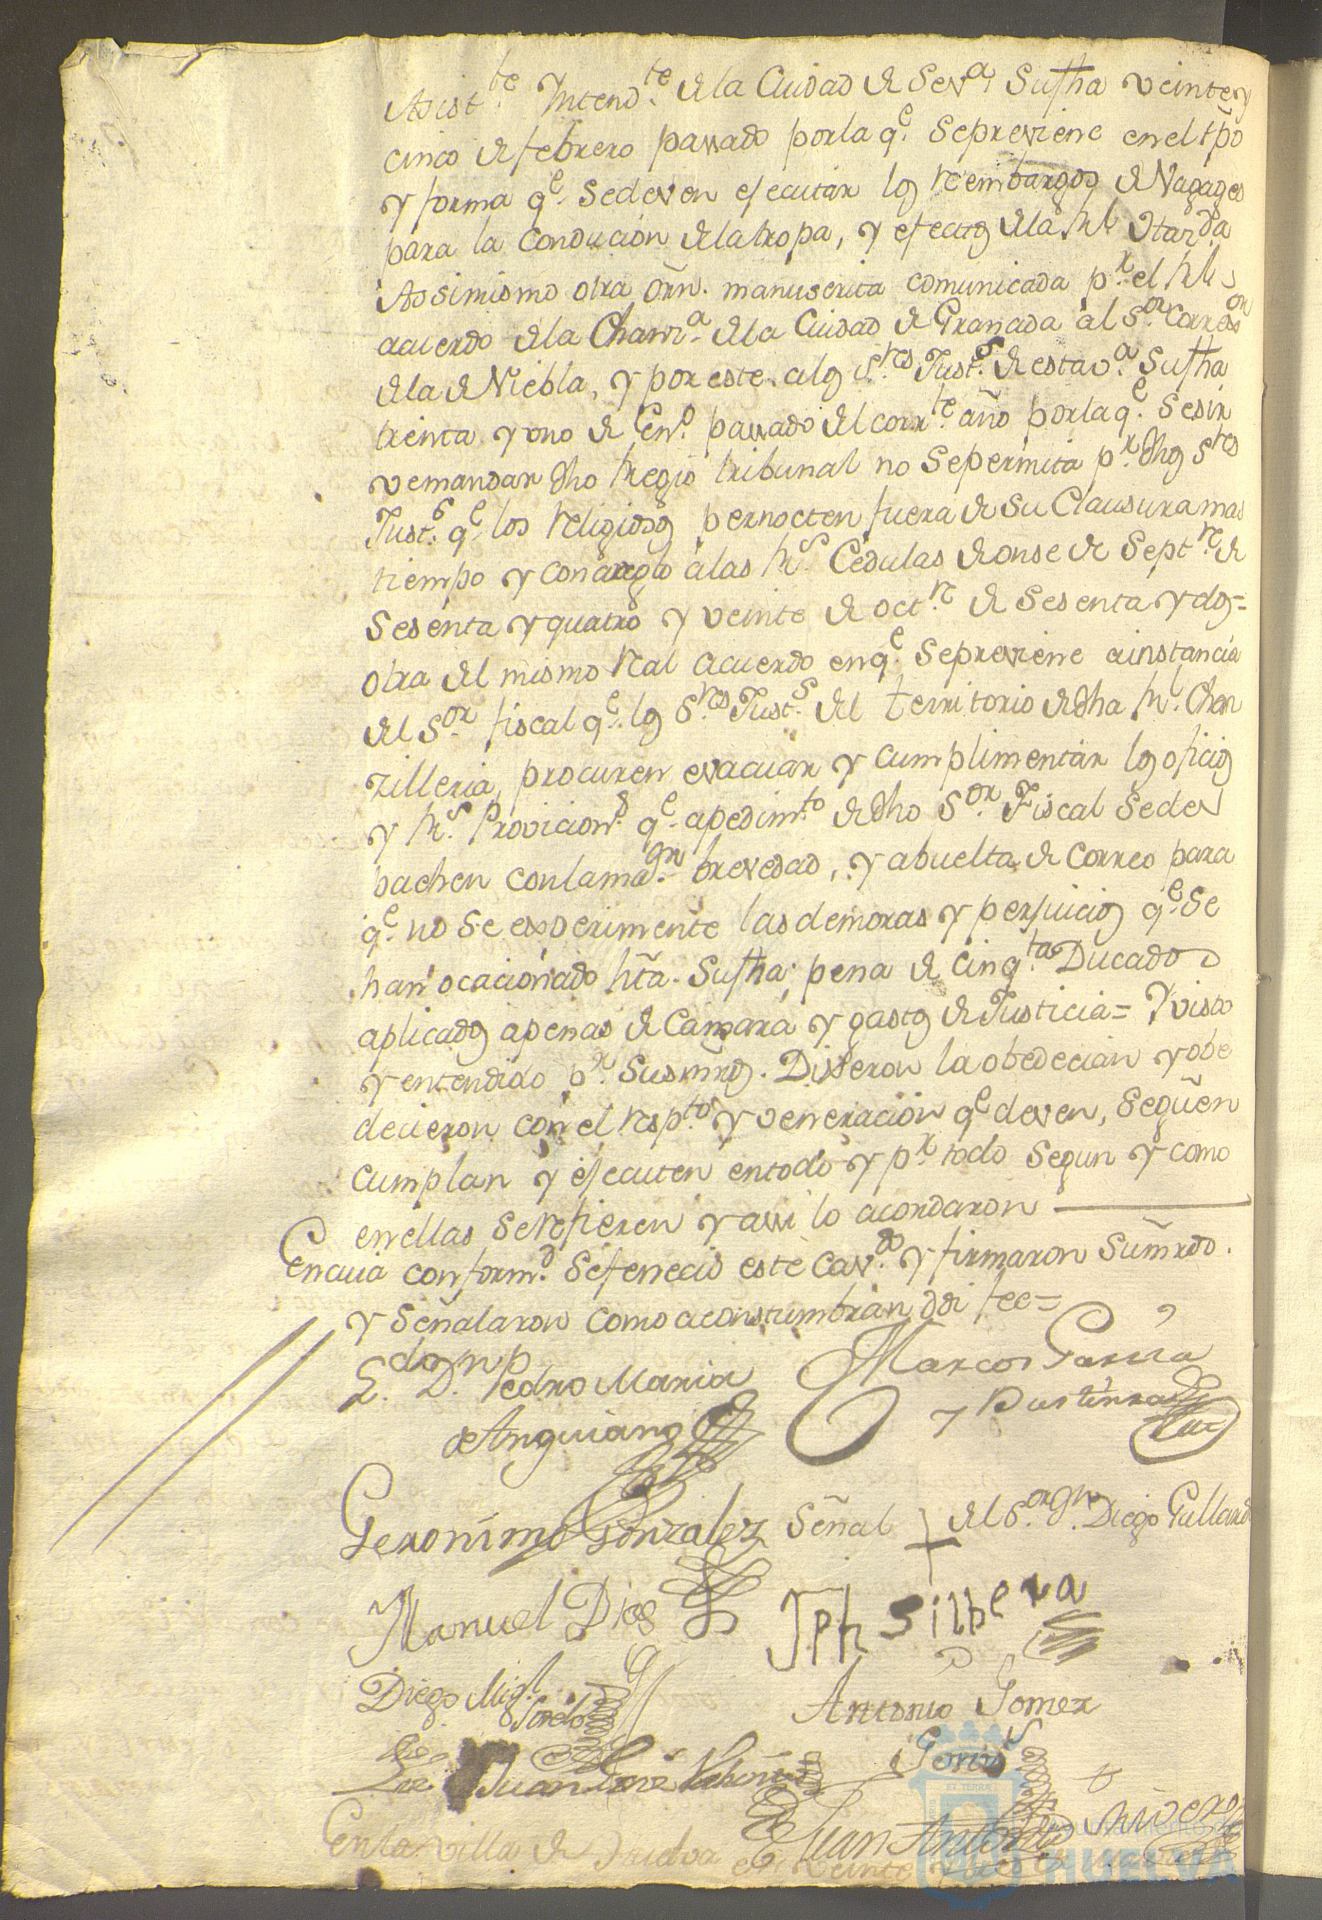 Asist.te Yntend.te de la Ciudad de Sev.a Su fha veinte y
cinco de febrero passado por la q.e Se previene en el tpo
y forma q.e Se deven executar los Rembargos de Vagages
para la Conducion de la tropa, y efectos de la Rl
Assimismo otra orn. manuscrita comunicada p.r el Rl
acuerdo de la Chanz.a de la Ciudad de Granada al S.or Corre.or
de la de Niebla, y por este a los S.res Just.s de esta v.a Su fha
treinta y uno de En.o passado del corr.te año por la q.e Se sir
ve mandar dho Regio tribunal no Se permita p.r dhos S.res
Just.s q.e los Religiosos pernocten fuera de Su Clausura mas
tiempo y con arreglo a las R.s Cedulas de onse de Sept.re de
Sesenta y quatro y veinte de oct.re de Sesenta y dos=
otra del mismo Real acuerdo en q.e Se previene a instancia
del S.or fiscal q.e los S.res Just.s del territorio de dha Rl. Chan
zilleria, procuren evacuar y cumplimentar los oficios
y R.s Provicion.s q.e a pedim.to de dho S.or Fiscal Se des
pachen con la ma.or brevedad, y a buelta de Correo para
q.e no Se experimente las demoras y perjuicios q.e Se
han ocacionado hta. Su fha; pena de Cinq.ta Ducados
aplicados a penas de Camara y gastos de Justicia= Y visto
y entendido p.r Sus mrds. Dijeron la obedecian y obe
decieron con el resp.to y veneracion q.e deven, Seguen
cumplan y ejecuten en todo y p.r todo Segun y como
en ellas Se refieren y assi lo acordaron
En cuia conform.d Se fenecio este Cav.do y firmaron Sus mrds.
y Señalaron como acostumbran doi fee=
L. D. Pedro Maria
de Anguiano
Marcos Garcia
y
Geronimo Gonzalez
Señal + del S.or D.n Diego Gallardo
Manuel Dias
Jph Silbera
Diego Mig.l
Antonio Gomez
Juan Jose
Juan Antonio
En la villa de Huelva en veinte y
HUELVA